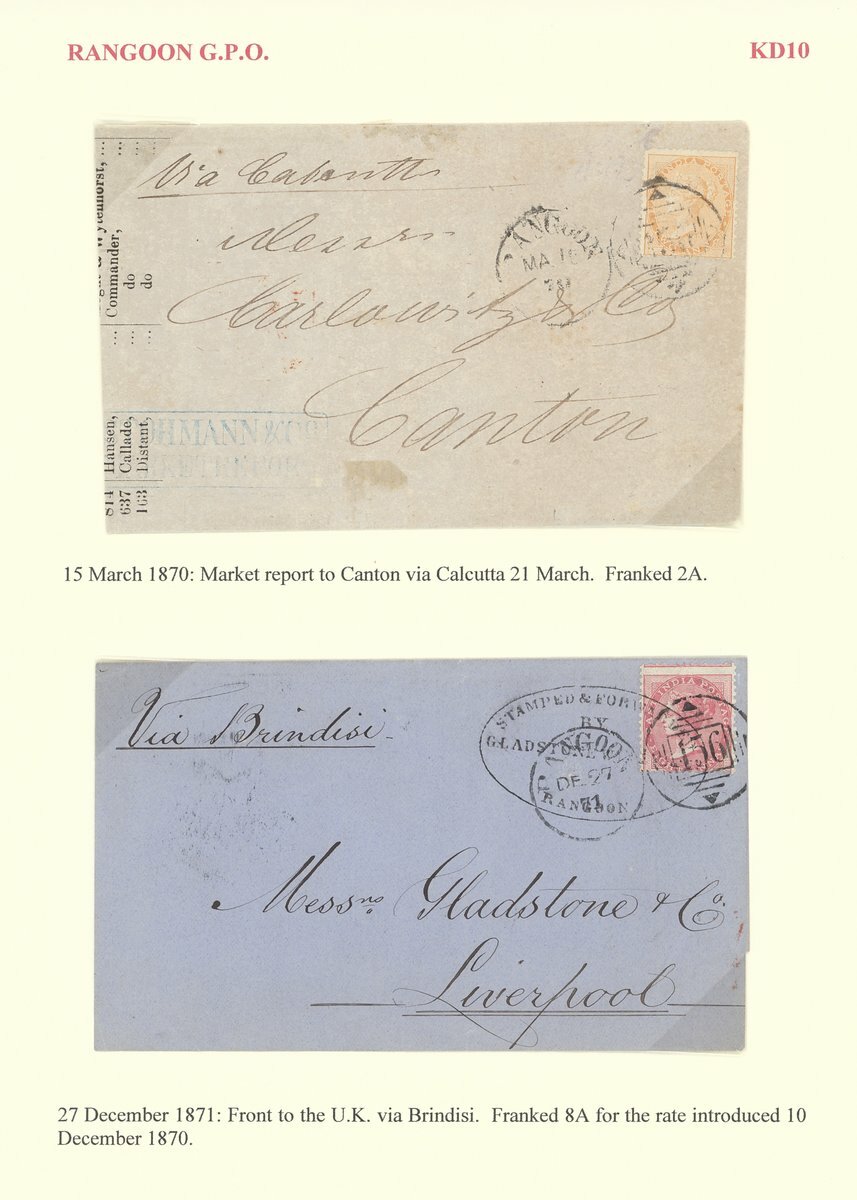 RANGOON G.P.O.
KD10
Commander, ...
do ...
do ...
814 Hansen, ...
637 Callade, ...
163 Distant, ...
Via Calcutta
Messrs
Carlowitz & Co
Canton
INDIA POSTAGE
RANGOON
MA 16
70
OHMANN & CO
15 March 1870: Market report to Canton via Calcutta 21 March. Franked 2A.
Via Brindisi
STAMPED & FORWARDED
BY
GLADSTONE
RANGOON
RANGOON
DE 27
71
INDIA POSTAGE
156
Messrs. Gladstone & Co.
Liverpool
27 December 1871: Front to the U.K. via Brindisi. Franked 8A for the rate introduced 10
December 1870.